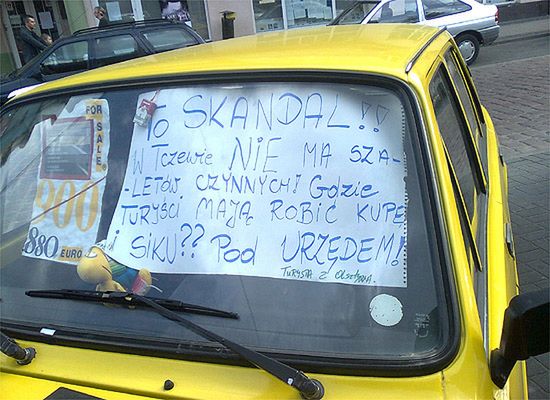 FOR SALE
900
880 EURO
To SKANDAL!!
W Tczewie NIE MA SZA-
-LETÓW CZYNNYCH! Gdzie
TURYŚCI MAJĄ ROBIĆ KUPĘ
i SIKU?? Pod URZĘDEM!
TURYSTA z Olsztyna.